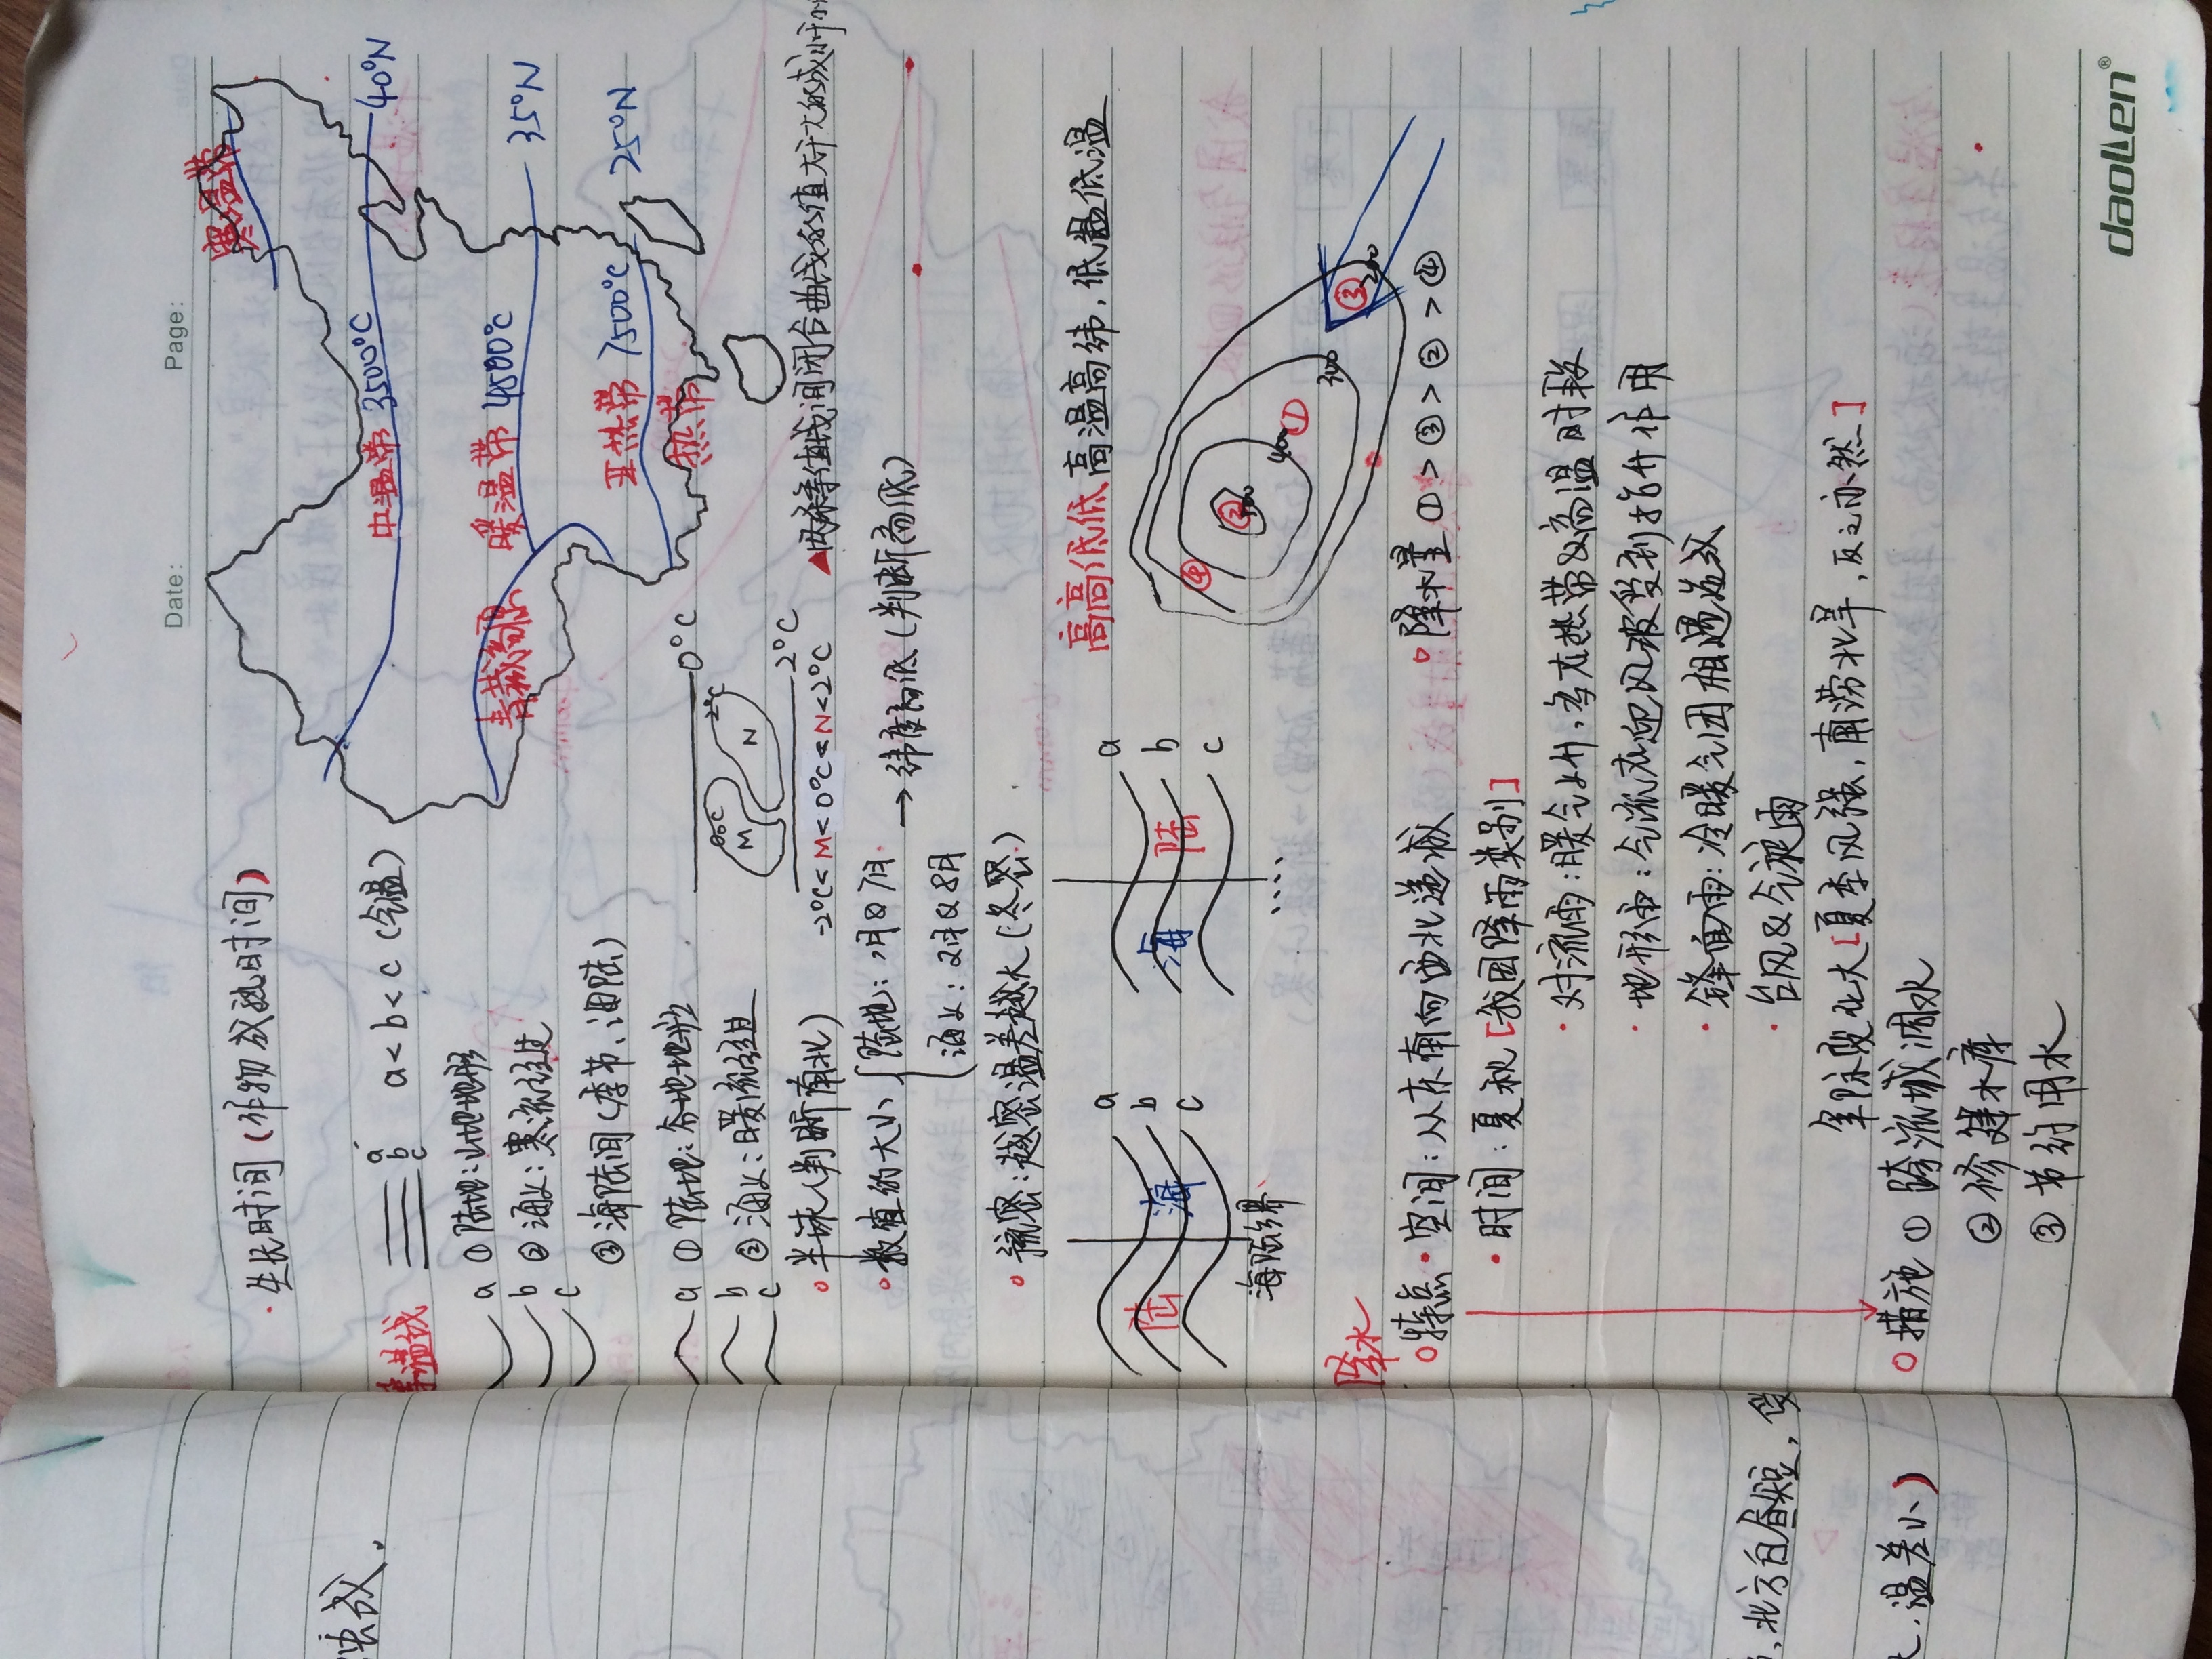 Date: Page:
·生长时间(作物成熟时间)
寒温带
中温带 3500°C 40°N
青藏高原 暖温带 4500°C 35°N
亚热带 7500°C 25°N
热带
蚀成.
等温线 a b c a<b<c (气温)
a ①陆地:山地地形
b ②海上:寒流经过
c
③海陆间(季节、海陆)
a ①陆地:谷地地形
b ②海上:暖流经过
c
0°C
0°C 2°C
M N
2°C
-2°C<M<0°C<N<2°C
▲两条等值线间闭合曲线的值大于大的或小于小
○半球(判断南北)
○数值的大小 陆地:1月&7月
海上:2月&8月
→纬度高低(判断高低)
○疏密:越密温差越大(冬密)
高高低低 高温高纬,低温低温
陆 海 a b c
海陆分界
海 陆 a b c
....
④ ② ① ③
400 300 200
降水
○特点·空间:从东南向西北递减
○降水量①>③>②>④
·时间:夏秋[我国降雨类别]
·对流雨:暖气上升,多在热带&高温时段
·地形雨:气流在迎风坡受到抬升作用
·锋面雨:冷暖气团相遇造成
·台风&气旋雨
年际变化大[夏季风强,南涝北旱,反之亦然]
○措施①跨流域调水
②修建水库
③节约用水
,北方白昼短,受
.温差小)
daolen®